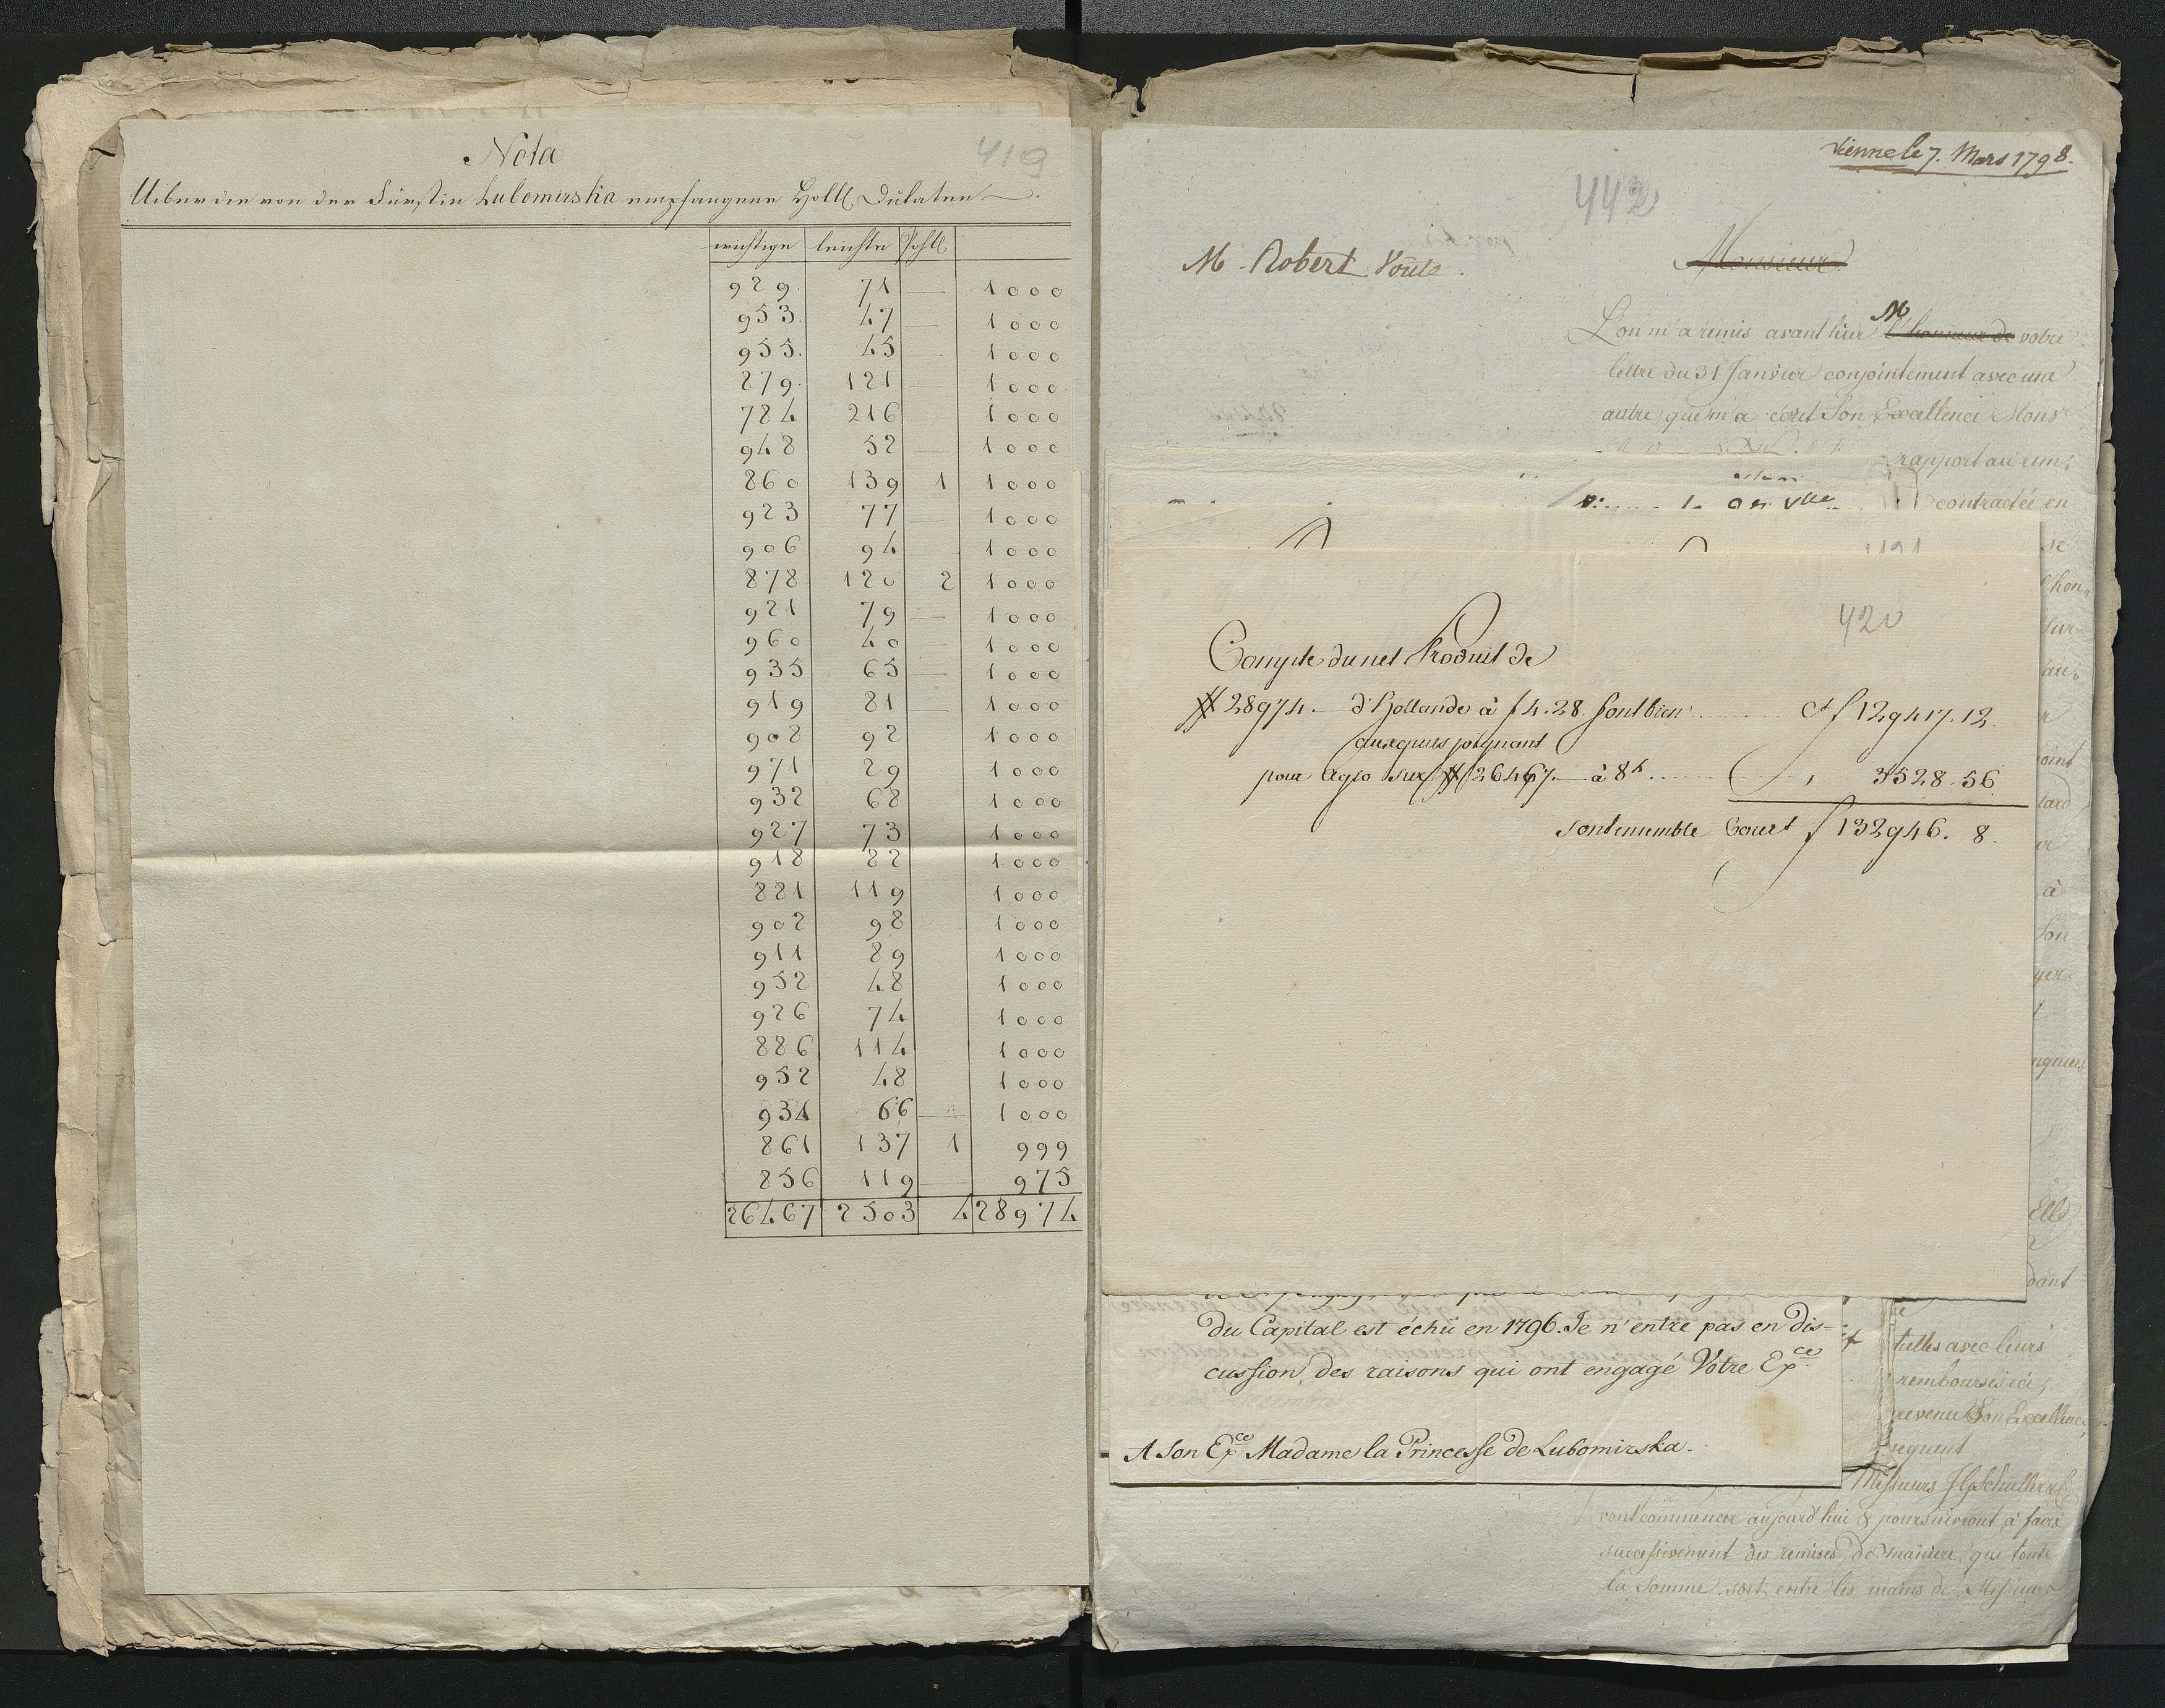 419
Nota
Uiber die von der Fürstin Lubomirska empfangene Holl. Dukaten
wichtige leichte Fehll
929. 71 — 1000
953. 47 — 1000
955. 45 — 1000
279. 121 — 1000
784 216 1000
948 52 — 1000
860 139 1 1000
923 77 — 1000
906 94 — 1000
878 120 2 1000
921 79 — 1000
960 40 — 1000
935 65 — 1000
919 81 — 1000
908 92 1000
971 29 1000
932 68 1000
927 73 1000
918 82 1000
881 119 1000
902 98 1000
911 89 1000
952 48 1000
926 74 1000
886 114 1000
952 48 1000
934 66 — 1000
861 137 1 999
856 119 — 975
26467 2503 4 28974
Vienne le 7. Mars 1798.
442
M. Robert Voûte.
Monsieur
L'on m'a remis avant hier M l'honneur de votre
lettre du 31 Janvier conjointement avec une
autre que m'a écrit Son Excellence Monsr
rapport au rem,
contractée en
se
l'hon,
sur
au,
420
Compte du net Produit de
# 28974. d'Hollande à f 4.28. font bien ........ Ct f 129417.12.
auxquels joignant
pour Agio sur # 26467. — à 8 ........ , 3528.56
sont ensemble Court f 132946. 8.
oint
tard
à
Son
yer
nquiers
Elle
dant
du Capital est échû en 1796. Je n'entre pas en dis=
cussion des raisons qui ont engagé Votre Exce.
A Son Exce Madame la Princesse de Lubomirska.
telles avec leurs
remboursés ici,
prevenu Son Excellence,
sequent
Messieurs
vont commencer aujourd'hui & poursuivront, à faire
successivement des remises, de maniere que toute
la Somme soit entre les mains de Messieurs